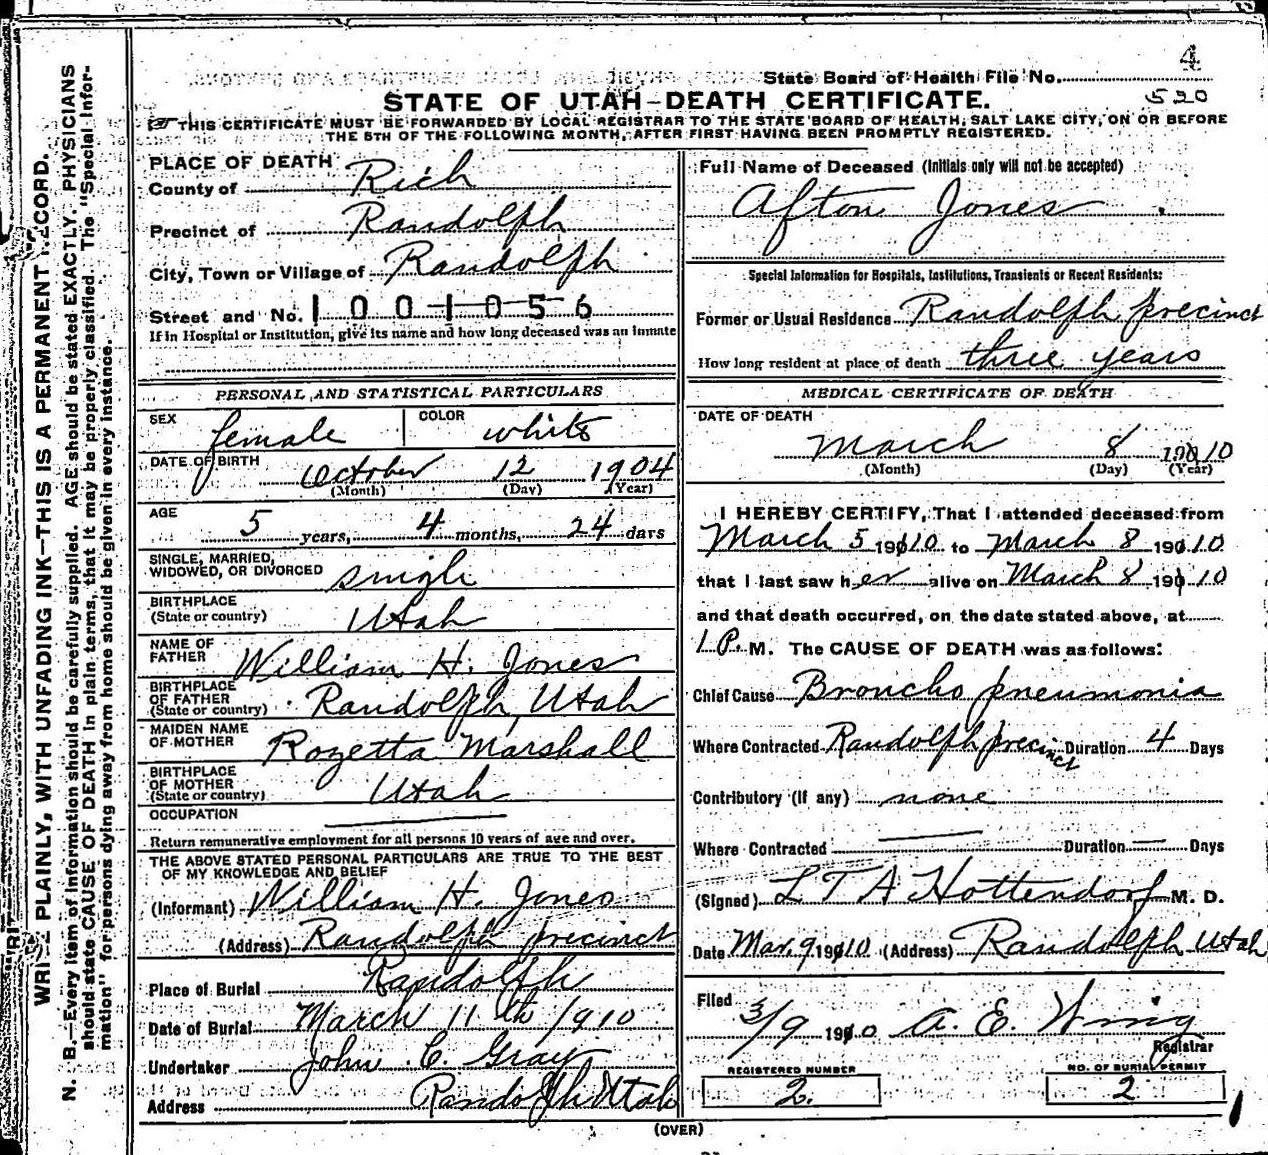 4
State Board of Health File No.
520
STATE OF UTAH—DEATH CERTIFICATE.
THIS CERTIFICATE MUST BE FORWARDED BY LOCAL REGISTRAR TO THE STATE BOARD OF HEALTH, SALT LAKE CITY, ON OR BEFORE
THE 5TH OF THE FOLLOWING MONTH, AFTER FIRST HAVING BEEN PROMPTLY REGISTERED.
WRITE PLAINLY, WITH UNFADING INK—THIS IS A PERMANENT RECORD.
N. B.—Every item of information should be carefully supplied. AGE should be stated EXACTLY. PHYSICIANS
should state CAUSE OF DEATH in plain terms, that it may be properly classified. The "Special Infor-
mation" for persons dying away from home should be given in every instance.
PLACE OF DEATH
County of Rich
Precinct of Randolph
City, Town or Village of Randolph
Street and No. 1001056
If in Hospital or Institution, give its name and how long deceased was an inmate
PERSONAL AND STATISTICAL PARTICULARS
SEX female COLOR white
DATE OF BIRTH October 12 1904
(Month) (Day) (Year)
AGE 5 years, 4 months, 24 days
SINGLE, MARRIED,
WIDOWED, OR DIVORCED single
BIRTHPLACE
(State or country) Utah
NAME OF
FATHER William H. Jones
BIRTHPLACE
OF FATHER
(State or country) Randolph, Utah
MAIDEN NAME
OF MOTHER Rozetta Marshall
BIRTHPLACE
OF MOTHER
(State or country) Utah
OCCUPATION
Return remunerative employment for all persons 10 years of age and over.
THE ABOVE STATED PERSONAL PARTICULARS ARE TRUE TO THE BEST
OF MY KNOWLEDGE AND BELIEF
(Informant) William H. Jones
(Address) Randolph precinct
Place of Burial Randolph
Date of Burial March 11th 1910
Undertaker John C. Gray
Address Randolph Utah
Full Name of Deceased (Initials only will not be accepted)
Afton Jones
Special Information for Hospitals, Institutions, Transients or Recent Residents:
Former or Usual Residence Randolph precinct
How long resident at place of death three years
MEDICAL CERTIFICATE OF DEATH
DATE OF DEATH
March 8 1910
(Month) (Day) (Year)
I HEREBY CERTIFY, That I attended deceased from
March 5 1910 to March 8 1910
that I last saw her alive on March 8 1910
and that death occurred, on the date stated above, at
1 P. M. The CAUSE OF DEATH was as follows:
Chief Cause Broncho pneumonia
Where Contracted Randolph precinct Duration 4 Days
Contributory (If any) none
Where Contracted — Duration — Days
(Signed) L T A Hottendorf M. D.
Date Mar. 9 1910 (Address) Randolph Utah
Filed 3/9 1910 A. E. Wing
Registrar
REGISTERED NUMBER
2.
NO. OF BURIAL PERMIT
2
(OVER)